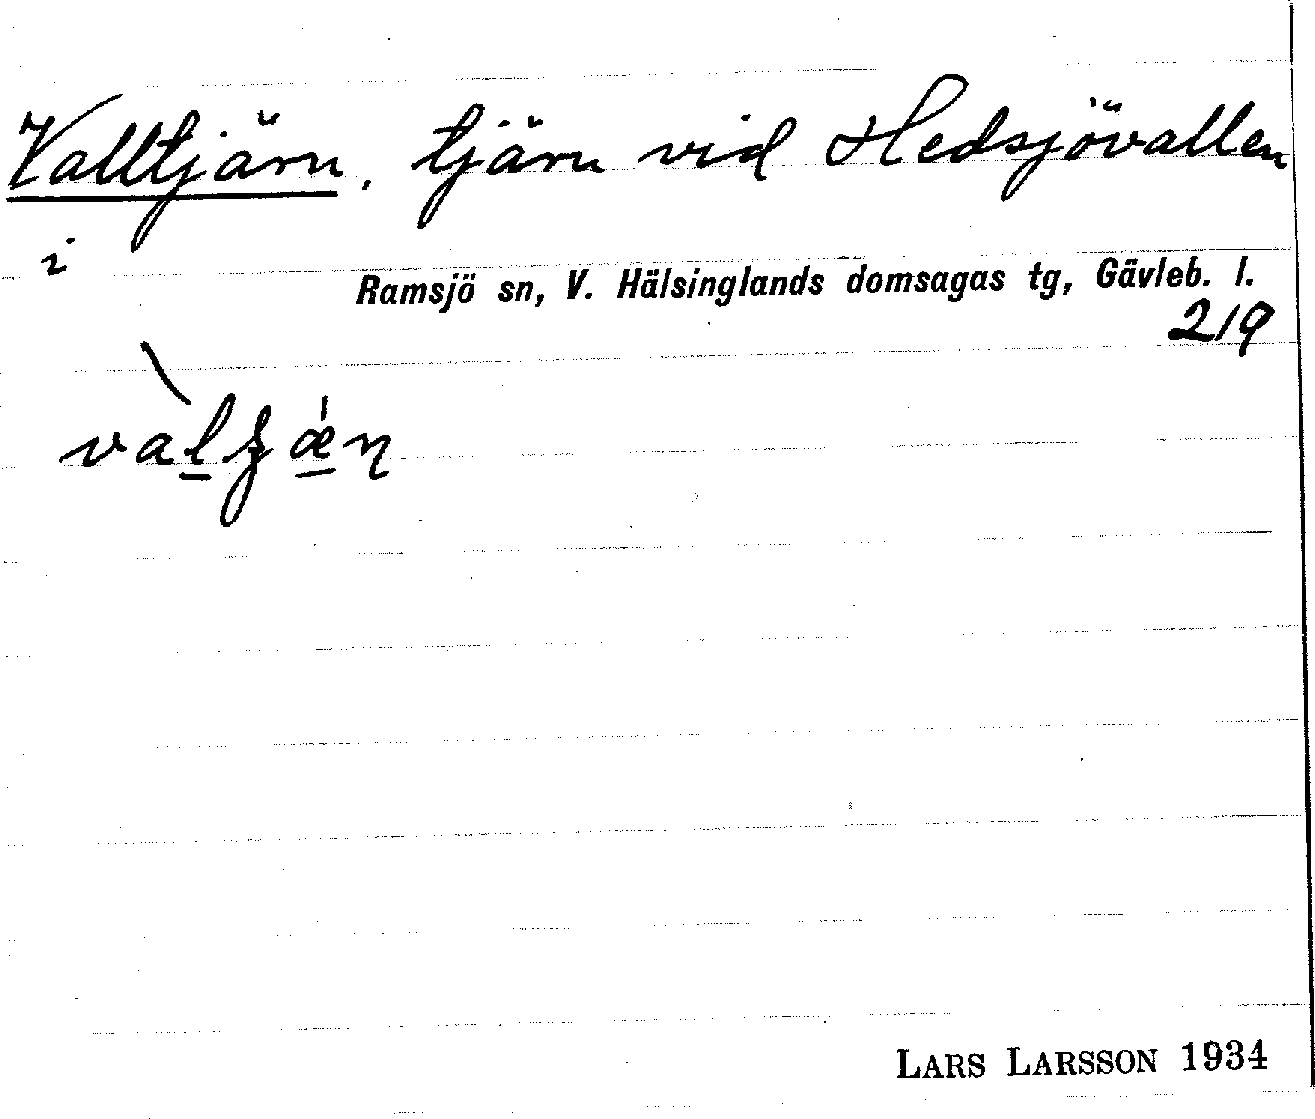 Valltjärn, tjärn vid Hedsjövallen
i
Ramsjö sn, V. Hälsinglands domsagas tg, Gävleb. l.
219
LARS LARSSON 1934